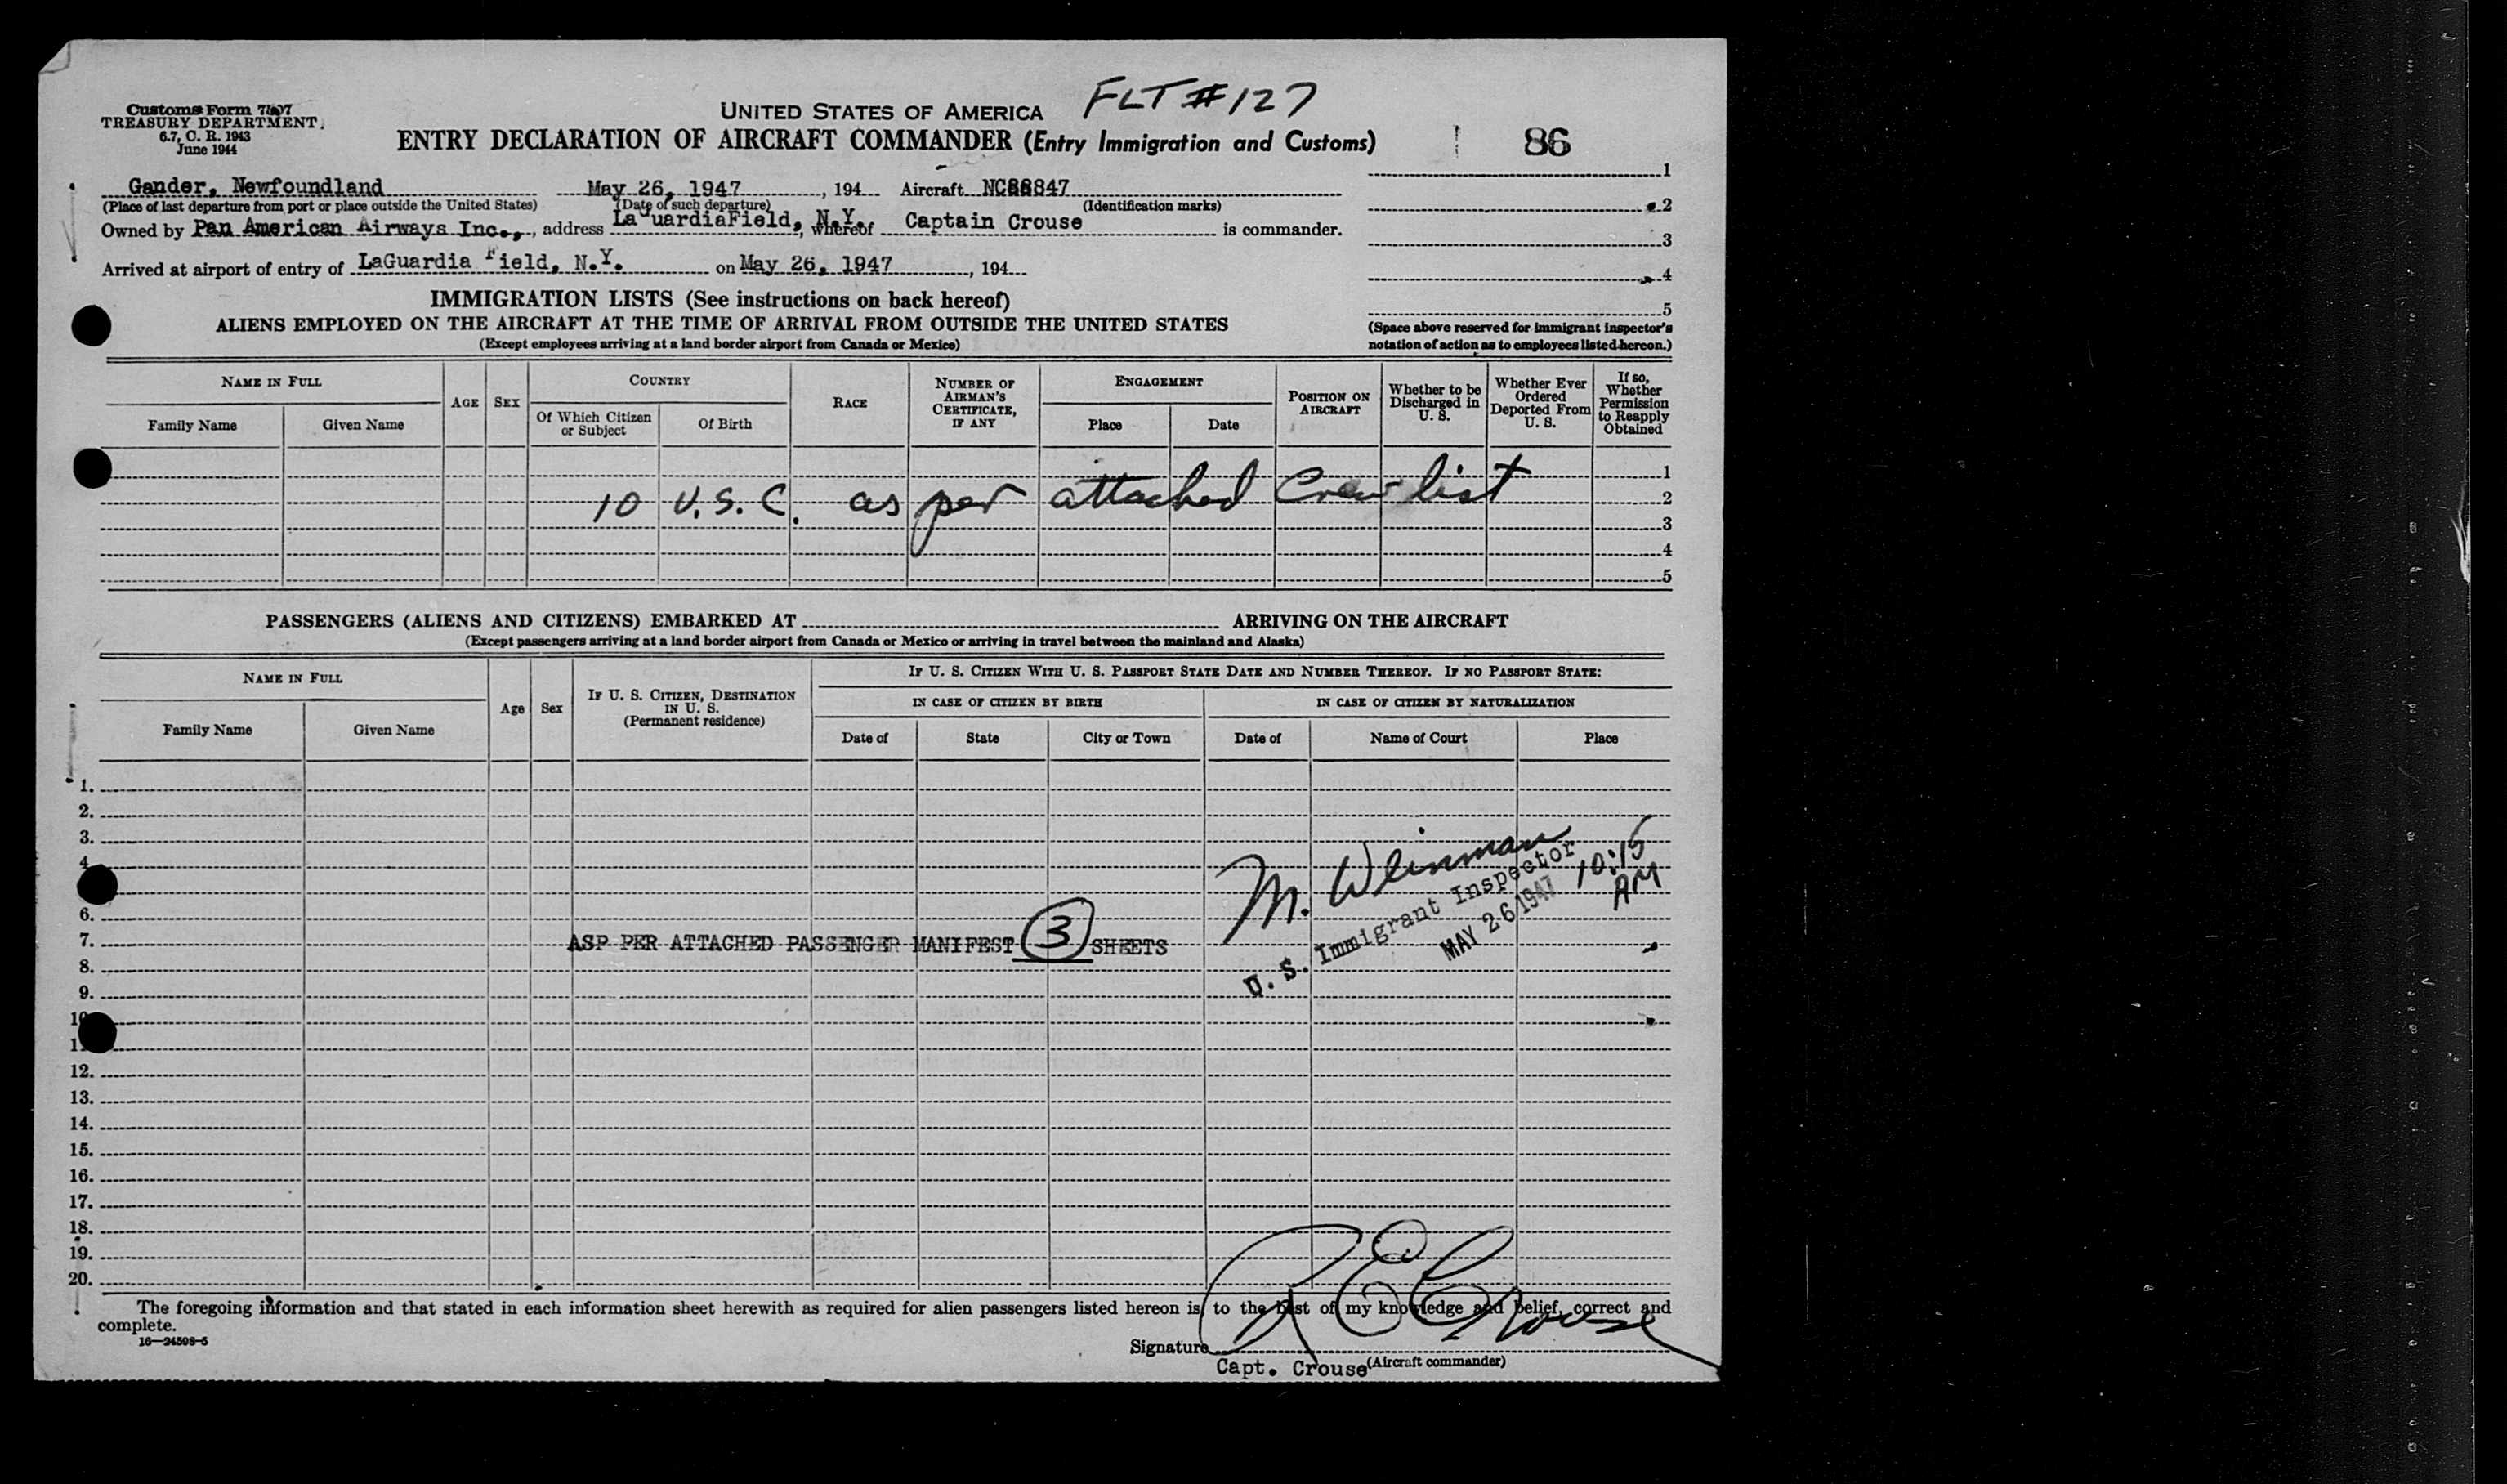 FLT # 127
Customs Form 7507
TREASURY DEPARTMENT
6.7, C. R. 1943
June 1944
UNITED STATES OF AMERICA
ENTRY DECLARATION OF AIRCRAFT COMMANDER (Entry Immigration and Customs)
86
Gander, Newfoundland May 26, 1947, 194 Aircraft NC88847
(Place of last departure from port or place outside the United States) (Date of such departure) (Identification marks)
Owned by Pan American Airways Inc., address LaGuardiaField, N.Y. whereof Captain Crouse is commander.
Arrived at airport of entry of LaGuardia Field, N.Y. on May 26, 1947, 194
1
2
3
4
5
(Space above reserved for immigrant inspector's
notation of action as to employees listed hereon.)
IMMIGRATION LISTS (See instructions on back hereof)
ALIENS EMPLOYED ON THE AIRCRAFT AT THE TIME OF ARRIVAL FROM OUTSIDE THE UNITED STATES
(Except employees arriving at a land border airport from Canada or Mexico)
NAME IN FULL
Family Name
Given Name
AGE
SEX
COUNTRY
Of Which Citizen
or Subject
Of Birth
RACE
NUMBER OF
AIRMAN'S
CERTIFICATE,
IF ANY
ENGAGEMENT
Place
Date
POSITION ON
AIRCRAFT
Whether to be
Discharged in
U. S.
Whether Ever
Ordered
Deported From
U. S.
If so,
Whether
Permission
to Reapply
Obtained
1
10 U.S.C. as per attached Crew list
2
3
4
5
PASSENGERS (ALIENS AND CITIZENS) EMBARKED AT ARRIVING ON THE AIRCRAFT
(Except passengers arriving at a land border airport from Canada or Mexico or arriving in travel between the mainland and Alaska)
NAME IN FULL
Family Name
Given Name
Age
Sex
IF U. S. CITIZEN, DESTINATION
IN U. S.
(Permanent residence)
IF U. S. CITIZEN WITH U. S. PASSPORT STATE DATE AND NUMBER THEREOF. IF NO PASSPORT STATE:
IN CASE OF CITIZEN BY BIRTH
IN CASE OF CITIZEN BY NATURALIZATION
Date of
State
City or Town
Date of
Name of Court
Place
1.
2.
3.
4
6.
7. ASP PER ATTACHED PASSENGER MANIFEST 3 SHEETS
M. Weinman
U. S. Immigrant Inspector
MAY 26 1947
10:15
AM
8.
9.
10
1
12.
13.
14.
15.
16.
17.
18.
19.
20.
The foregoing information and that stated in each information sheet herewith as required for alien passengers listed hereon is to the best of my knowledge and belief, correct and
complete.
16—24598-5
Signature R E Crouse
Capt. Crouse (Aircraft commander)